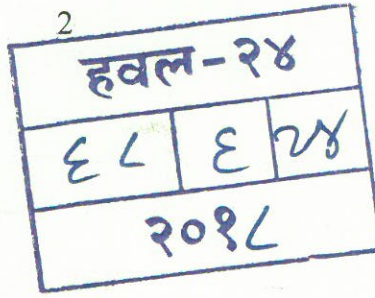 2
हवल-२४
६८ ६ २४
२०१८